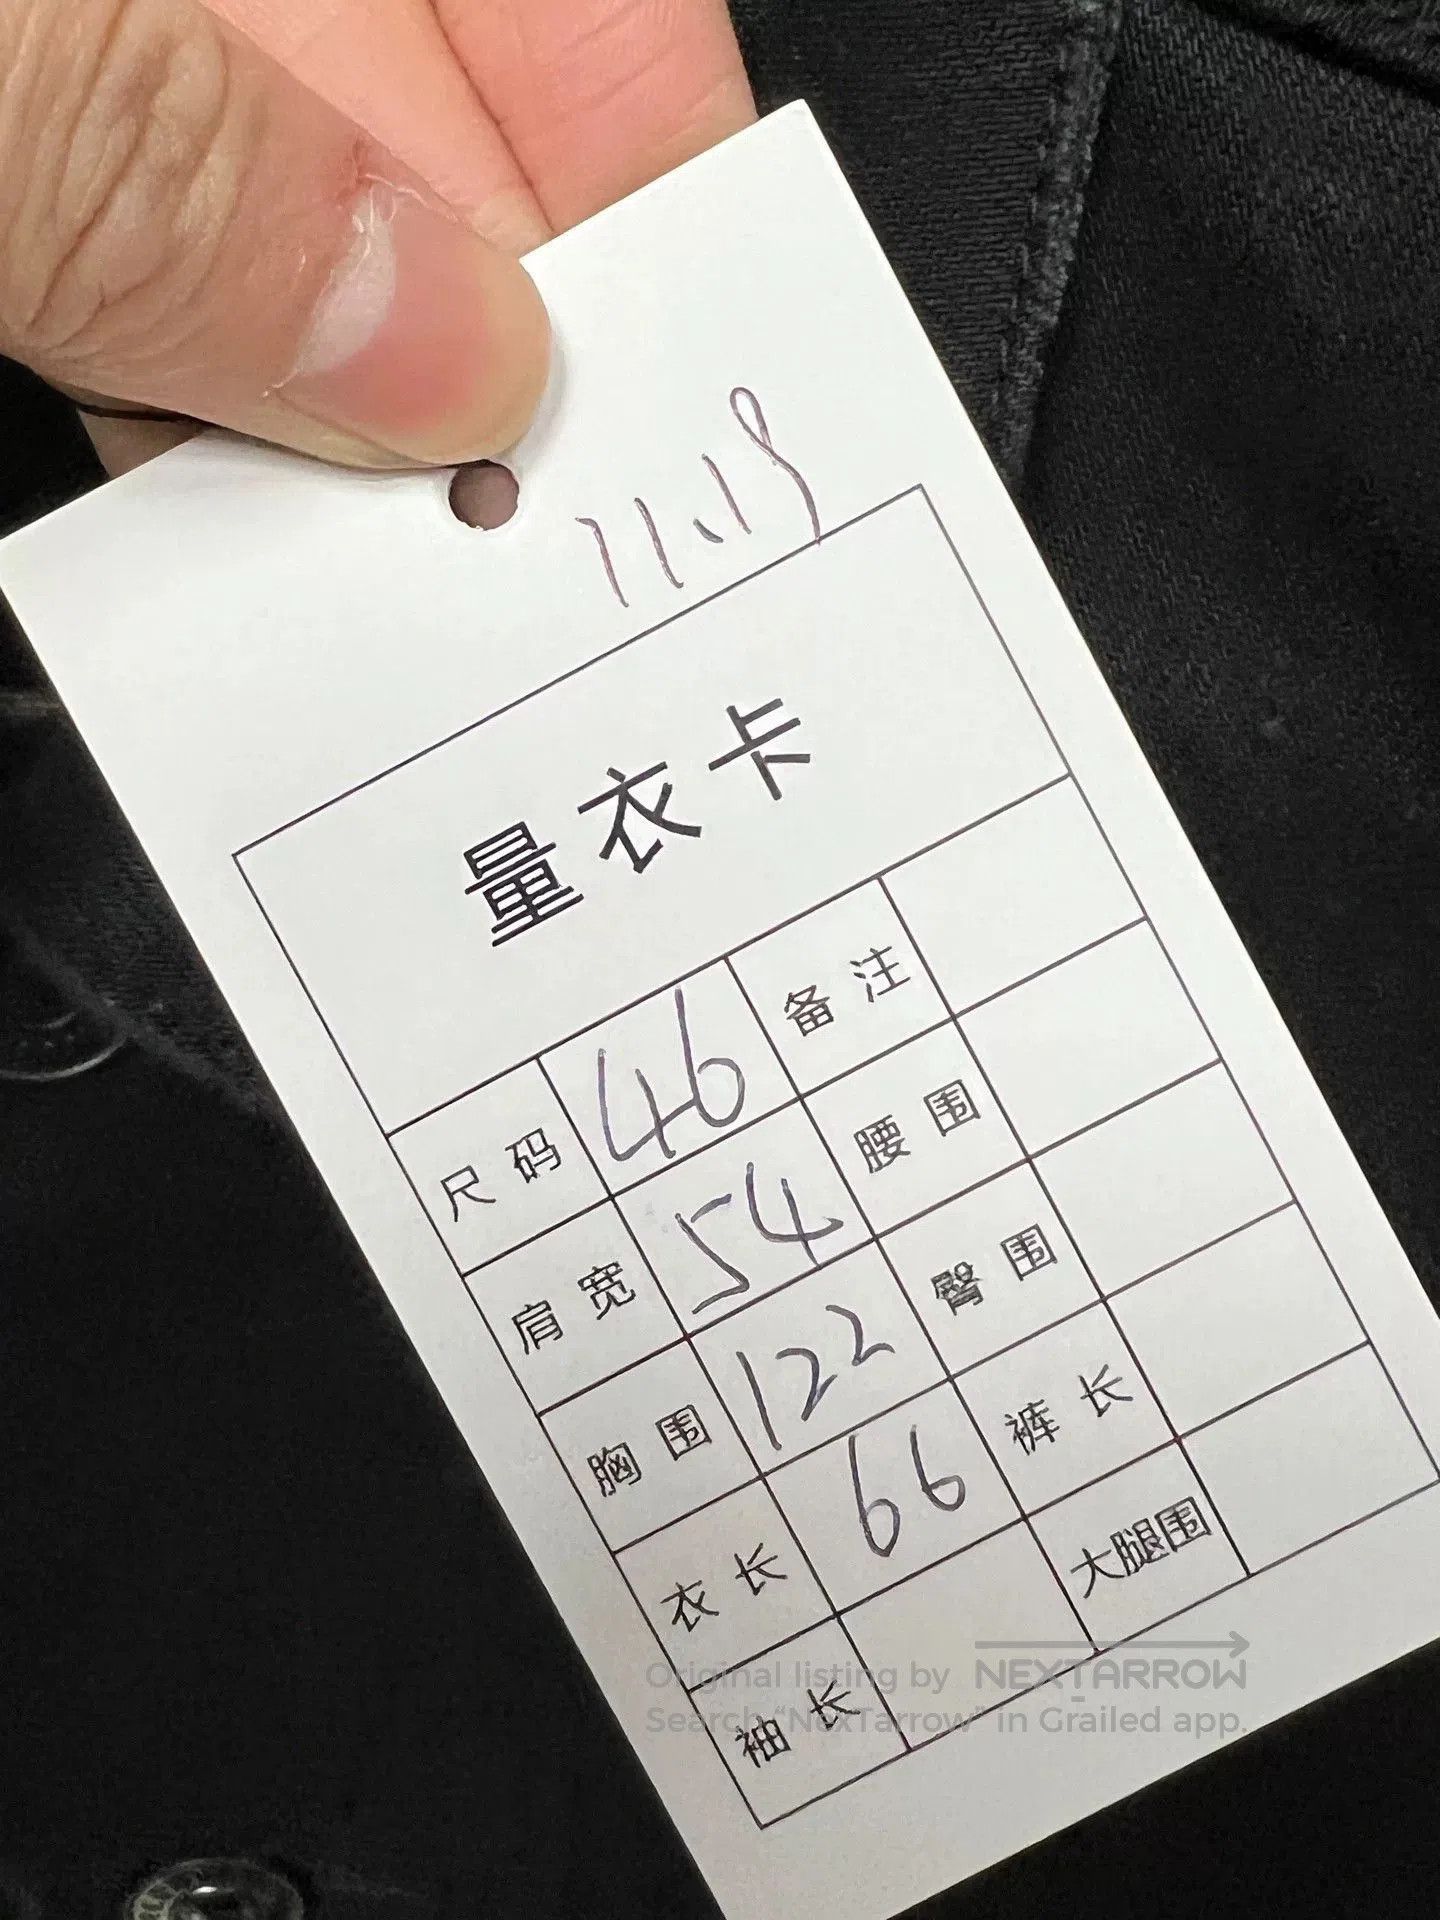 11.19
量衣卡
尺码 46 备注
肩宽 54 腰围
胸围 122 臀围
衣长 66 裤长
袖长 大腿围
Original listing by NEXTARROW
Search “NexTarrow” in Grailed app.